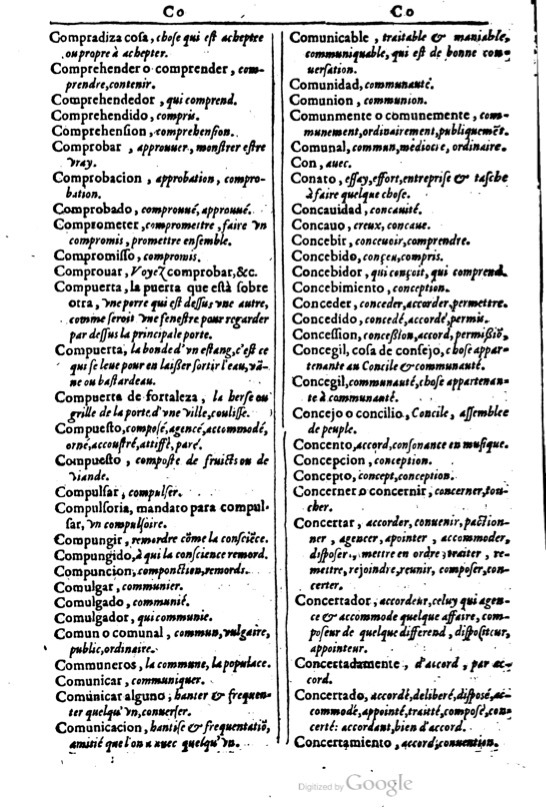 Co
Compradiza cosa, chose qui est acheptee
ou propre à achepter.
Comprehender o comprender, com-
prendre, contenir.
Comprehendedor, qui comprend.
Comprehendido, compris.
Comprehension, comprehension.
Comprobar, approuuer, monstrer estre
vray.
Comprobacion, approbation, compro-
bation.
Comprobado, comprouué, approuué.
Comprometer, compromettre, faire vn
compromis, promettre ensemble.
Compromisso, compromis.
Comprouar, Voyez comprobar, &c.
Compuerta, la puerta que està sobre
otra, vne porte qui est dessus vne autre,
comme seroit vne fenestre pour regarder
par dessus la principale porte.
Compuerta, la bonde d'vn estang, c'est ce
qui se leue pour en laisser sortir l'eau, vā-
ne ou bastardeau.
Compuerta de fortaleza, la herse ou
grille de la porte d'vne ville, coulisse.
Compuesto, composé, agencé, accommodé,
orné, accoustré, attiffé, paré.
Compuesto, composte de fruicts ou de
viande.
Compulsar, compulser.
Compulsoria, mandato para compul-
sar, vn compulsoire.
Compungir, remordre cōme la consciēce.
Compungido, à qui la conscience remord.
Compuncion, componction, remords.
Comulgar, communier.
Comulgado, communié.
Comulgador, qui communie.
Comun o comunal, commun, vulgaire,
public, ordinaire.
Communeros, la commune, la populace.
Comunicar, communiquer.
Comunicar alguno, hanter & frequen-
ter quelqu'vn, conuerser.
Comunicacion, hantise & frequentatiō,
amitié que l'on a auec quelqu'vn.
Co
Comunicable, traitable & maniable,
communiquable, qui est de bonne con-
uersation.
Comunidad, communauté.
Comunion, communion.
Comunmente o comunemente, com-
munement, ordinairement, publiquemēt.
Comunal, commun, mediocre, ordinaire.
Con, auec.
Conato, essay, effort, entreprise & tasche
à faire quelque chose.
Concauidad, concauité.
Concauo, creux, concaue.
Concebir, conceuoir, comprendre.
Concebido, conçeu, compris.
Concebidor, qui conçoit, qui comprend.
Concebimiento, conception.
Conceder, conceder, accorder, permettre.
Concedido, concedé, accordé, permis.
Concession, concession, accord, permissiō.
Concegil, cosa de consejo, chose appar-
tenante au Concile & communauté.
Concegil, communauté, chose appartenan-
te à communauté.
Concejo o concilio, Concile, assemblee
de peuple.
Concento, accord, consonance en musique.
Concepcion, conception.
Concepto, concept, conception.
Concerner o concernir, concerner, tou-
cher.
Concertar, accorder, conuenir, paction-
ner, agencer, apointer, accommoder,
disposer, mettre en ordre, traiter, re-
mettre, rejoindre, reunir, composer, con-
certer.
Concertador, accordeur, celuy qui agen-
ce & accommode quelque affaire, com-
poseur de quelque differend, dispositeur,
appointeur.
Concertadamente, d'accord, par ac-
cord.
Concertado, accordé, deliberé, disposé, ac-
commodé, appointé, traitté, composé, con-
certé: accordant, bien d'accord.
Concertamiento, accord, conuention.
Digitized by Google